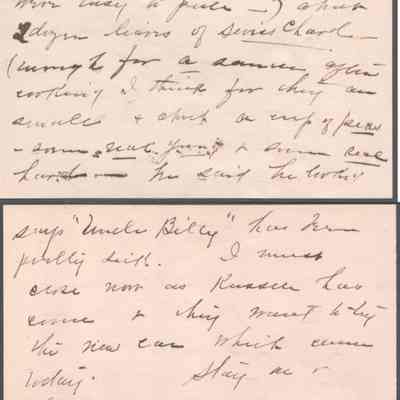 were easy to pick -) about
2 dozen leaves of Swiss Chard -
(enough for a after
cooking I think for they are
small & about a cup of peas
- some real young & some real
hard - he said he
says "Uncle Billy" has been
pretty sick. I must
close now as Russell has
come & they want to try
the new car which came
today. Stay as